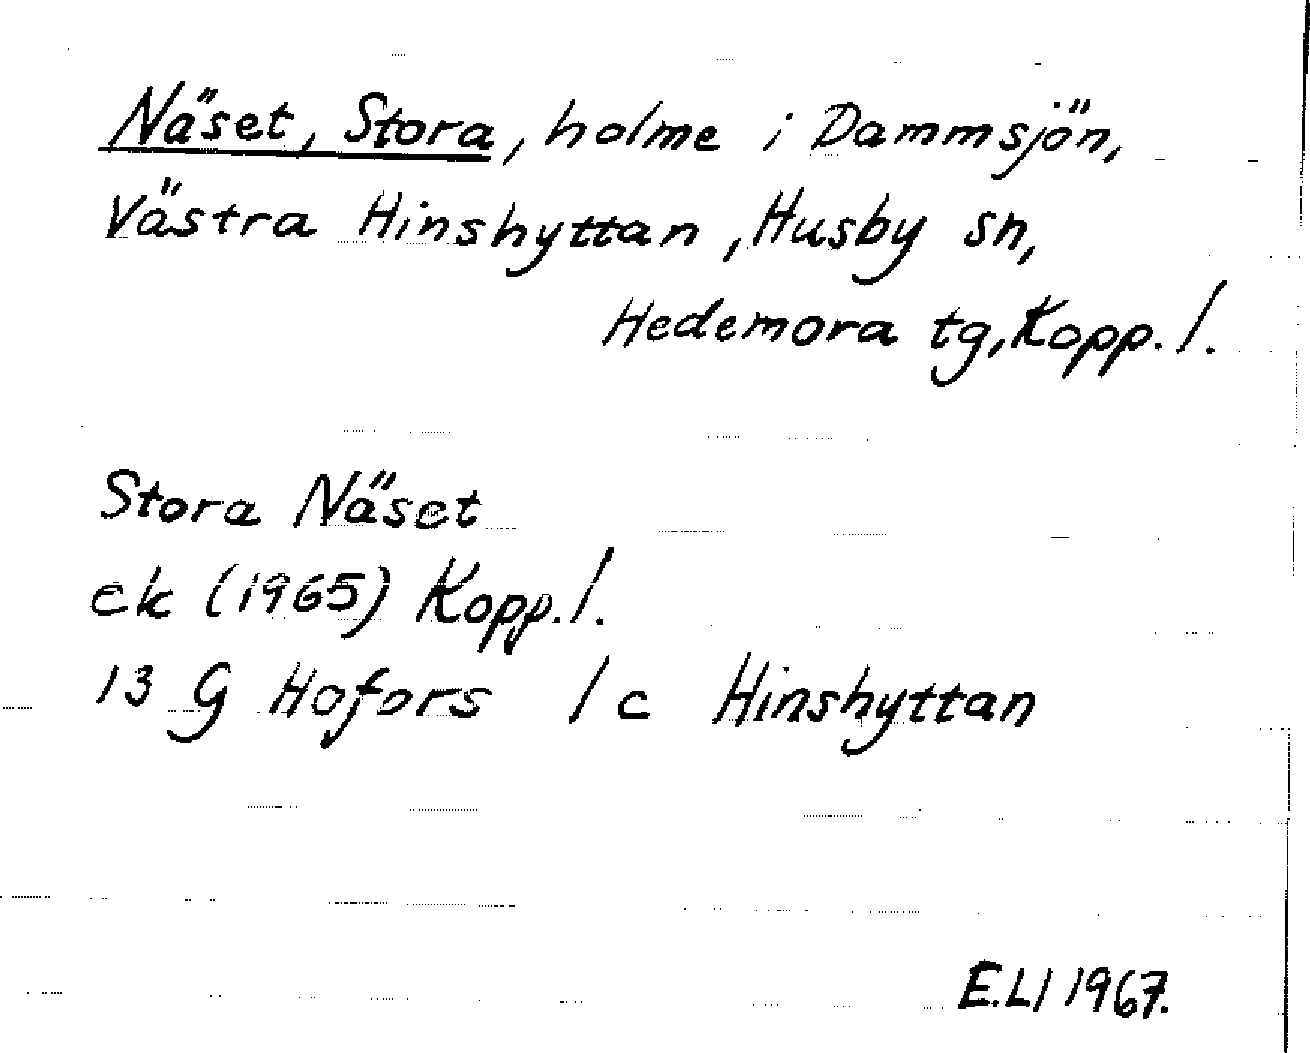 Näset, Stora, holme i Dammsjön,
Västra Hinshyttan, Husby sn,
Hedemora tg, Kopp. l.
Stora Näset
ek (1965) Kopp. l.
13 G Hofors 1 c Hinshyttan
E.LJ 1967.